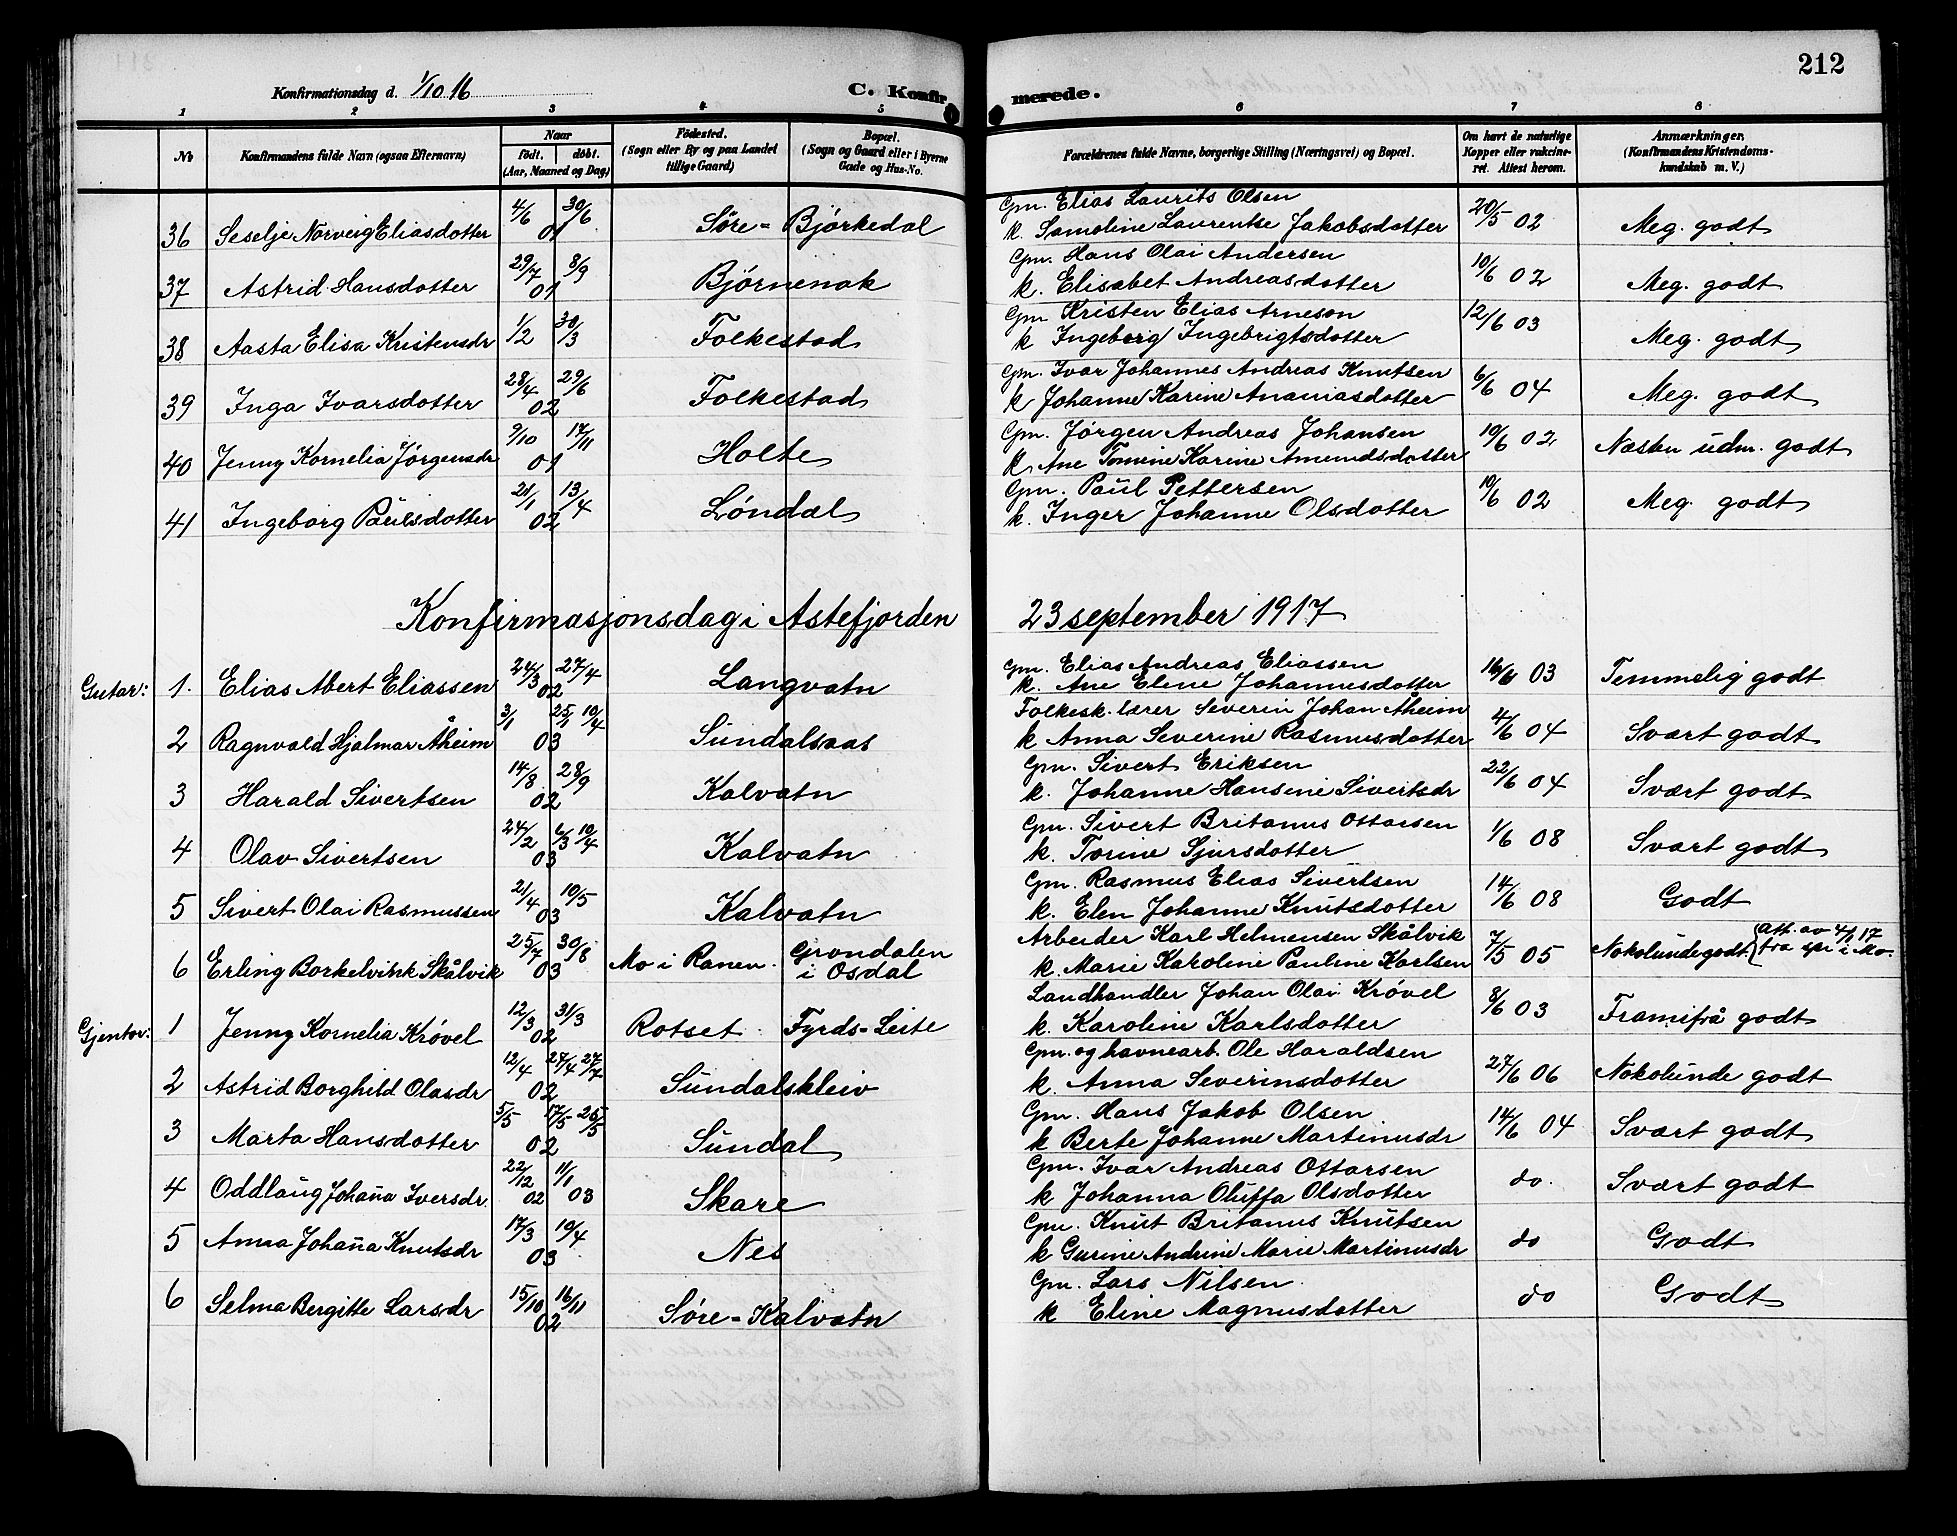 212
Konfirmationsdag d. 1/10 16 C. Konfirmerede.
1 2 3 4 5 6 7 8
No Konfirmandens fulde Navn (ogsaa Efternavn) Naar født. døbt. (Aar, Maaned og Dag) Fødested. (Sogn eller By og paa Landet tillige Gaard) Bopæl. (Sogn og Gaard eller i Byerne Gade og Hus-No. Forældrenes fulde Navne, borgerlige Stilling (Næringsvei) og Bopæl. Om havt de naturlige Kopper eller vakcineret. Attest herom. Anmærkninger. (Konfirmandens Kristendomskundskab m. V.)
36 Seselje Norveig Eliasdotter 4/6 30/6 01 Søre-Bjørkedal Gm. Elias Laurits Olsen
k. Samoline Laurentse Jakobsdotter 20/5 02 Meg. godt
37 Astrid Hansdotter 29/7 8/9 01 Bjørnenak Gm. Hans Olai Andersen
k. Elisabet Andreasdotter 10/6 02 Meg. godt
38 Aasta Elisa Kristensdr 1/2 30/3 Folkestad Gm Kristen Elias Arneson
k Ingeborg Ingebrigtsdotter 12/6 03 Meg. godt
39 Inga Ivarsdotter 28/4 29/6 02 Folkestad Gm. Ivar Johannes Andreas Knutsen
k Johanne Karine Ananiasdotter 6/6 04 Meg. godt
40 Jenny Kornelia Jørgensdr 9/10 17/11 01 Holte Gm. Jørgen Andreas Johansen
k Ane Tomine Karine Amundsdotter 10/6 02 Næsten udm. godt
41 Ingeborg Paulsdotter 21/1 13/4 02 Løndal Gm. Paul Pettersen
k. Inger Johanne Olsdotter 10/6 02 Meg. godt
Konfirmasjonsdag i Astefjorden 23 september 1917
Gutar: 1. Elias Abert Eliassen 24/3 27/4 02 Langvatn Gm. Elias Andreas Eliassen
k. Ane Elene Johannesdotter 16/6 03 Temmelig godt
2 Ragnvald Hjalmar Åheim 3/1 25/1 10/4 03 Sundalsaas Folkesk.lærer Severin Johan Åheim
k Anna Severine Rasmusdotter 4/6 04 Svært godt
3 Harald Sivertsen 14/8 28/9 02 Kalvatn Gm. Sivert Eriksen
k. Johanne Hansine Sivertsdr 22/6 04 Svært godt
4 Olav Sivertsen 24/2 6/3 10/4 03 Kalvatn Gm. Sivert Britanus Ottarsen
k. Torine Sjursdotter 1/6 08 Svært godt
5 Sivert Olai Rasmussen 21/4 10/5 03 Kalvatn Gm. Rasmus Elias Sivertsen
k. Elen Johanne Knutsdotter 14/6 08 Godt
6 Erling Borkelvink Skålvik 25/7 30/8 03 Mo i Ranen. Grøndalen i Osdal Arbeider Karl Helmensen Skålvik
k. Marie Karoline Pauline Karlsen 7/5 05 Nokolunde godt. (Att. av 4/1 17 fra spr i Mo.
Gjentor: 1 Jenny Kornelia Krøvel 12/3 31/3 02 Rotset Fyrds-Leite Landhandler Johan Olai Krøvel
k. Karoline Karlsdotter 8/6 03 Framifrå godt
2 Astrid Borghild Olasdr 12/4 24/4 27/7 02 Sundalskleiv Gm. og havnearb. Ole Haraldsen
k. Anna Severinsdotter 27/6 06 Nokolunde godt
3 Marta Hansdotter 5/5 17/5 26/5 02 Sundal Gm. Hans Jakob Olsen
k Berte Johanne Martinusdr 14/6 04 Svært godt
4 Oddlaug Johana Iversdr. 22/12 02 1/1 03 Skare Gm. Ivar Andreas Ottarsen
k Johanna Oluffa Olsdotter do. Svært godt
5 Anna Johana Knutsdr 17/3 10/4 03 Nes Gm. Knut Britanus Knutsen
k Gurine Andrine Marie Martinusdr do Godt
6 Selma Bergitte Larsdr 15/10 16/11 02 Søre-Kalvatn Gm. Lars Nilsen
k Eline Magnusdotter do Godt